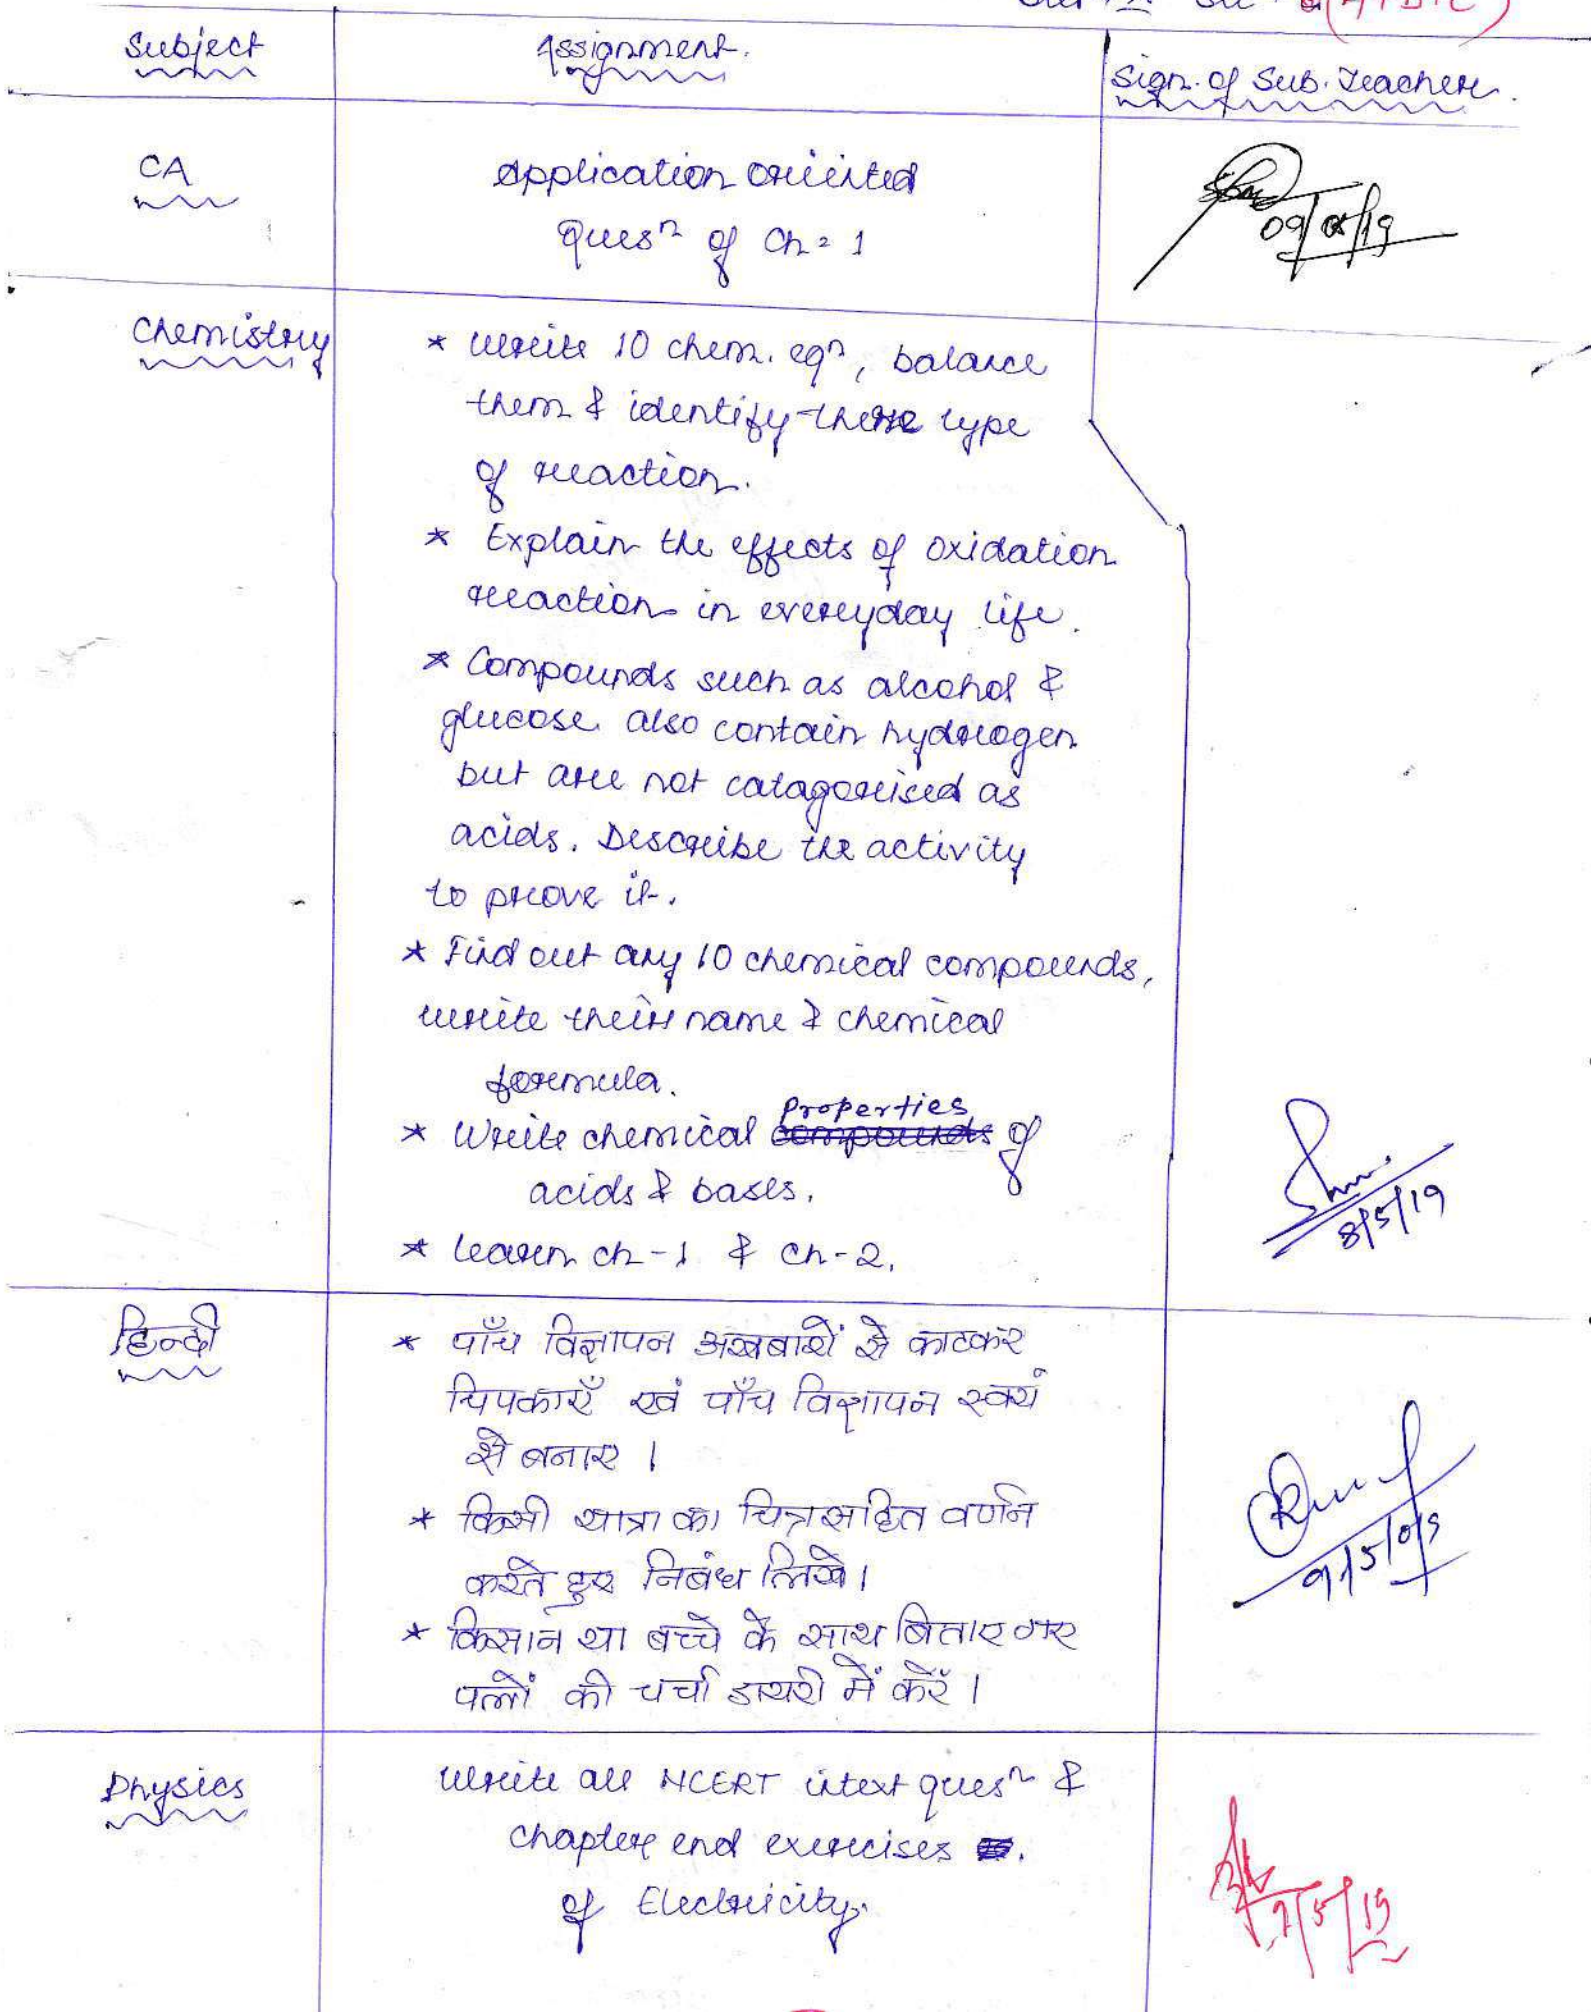 Subject
Assignment.
Sign. of Sub. Teacher.
CA
Application oriented
Quesⁿ of Ch = 1
09/05/19
Chemistry
* Write 10 chem. eqⁿ, balance
them & identify there type
of reaction.
* Explain the effects of oxidation
reaction in everyday life.
* Compounds such as alcohol &
glucose also contain hydrogen
but are not catagorised as
acids. Describe the activity
to prove it.
* Find out any 10 chemical compounds,
write their name & chemical
formula.
* Write chemical properties of
acids & bases.
* Learn ch-1 & ch-2.
8/5/19
हिन्दी
* पाँच विज्ञापन अखबारों से काटकर
चिपकाएँ एवं पाँच विज्ञापन स्वयं
से बनाए।
* किसी यात्रा का चित्र सहित वर्णन
करते हुए निबंध लिखे।
* किसान या बच्चे के साथ बिताए गए
पलों की चर्चा डायरी में करें।
Physics
Write all NCERT intext quesⁿ &
chapter end exercises.
of Electricity.
9/5/19